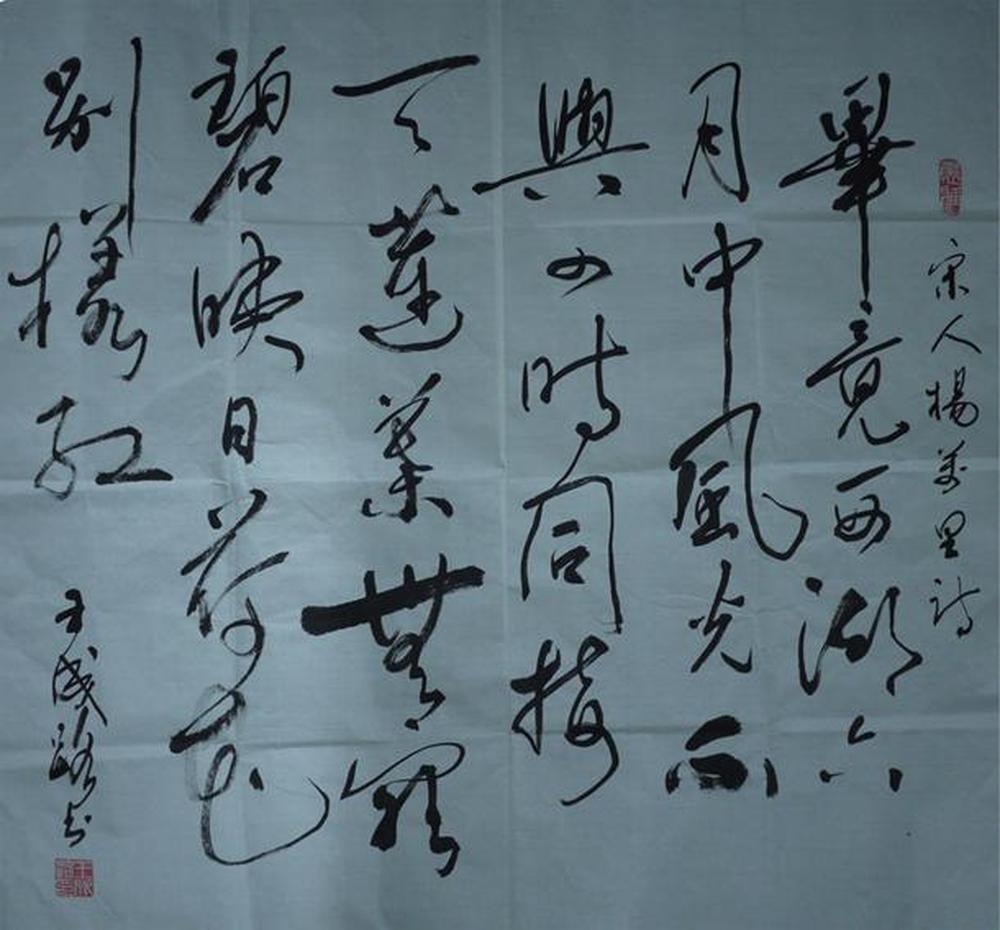 宋人楊萬里詩
畢竟西湖六
月中風光不
與四時同接
天蓮葉無窮
碧映日荷花
別樣紅
王成路书